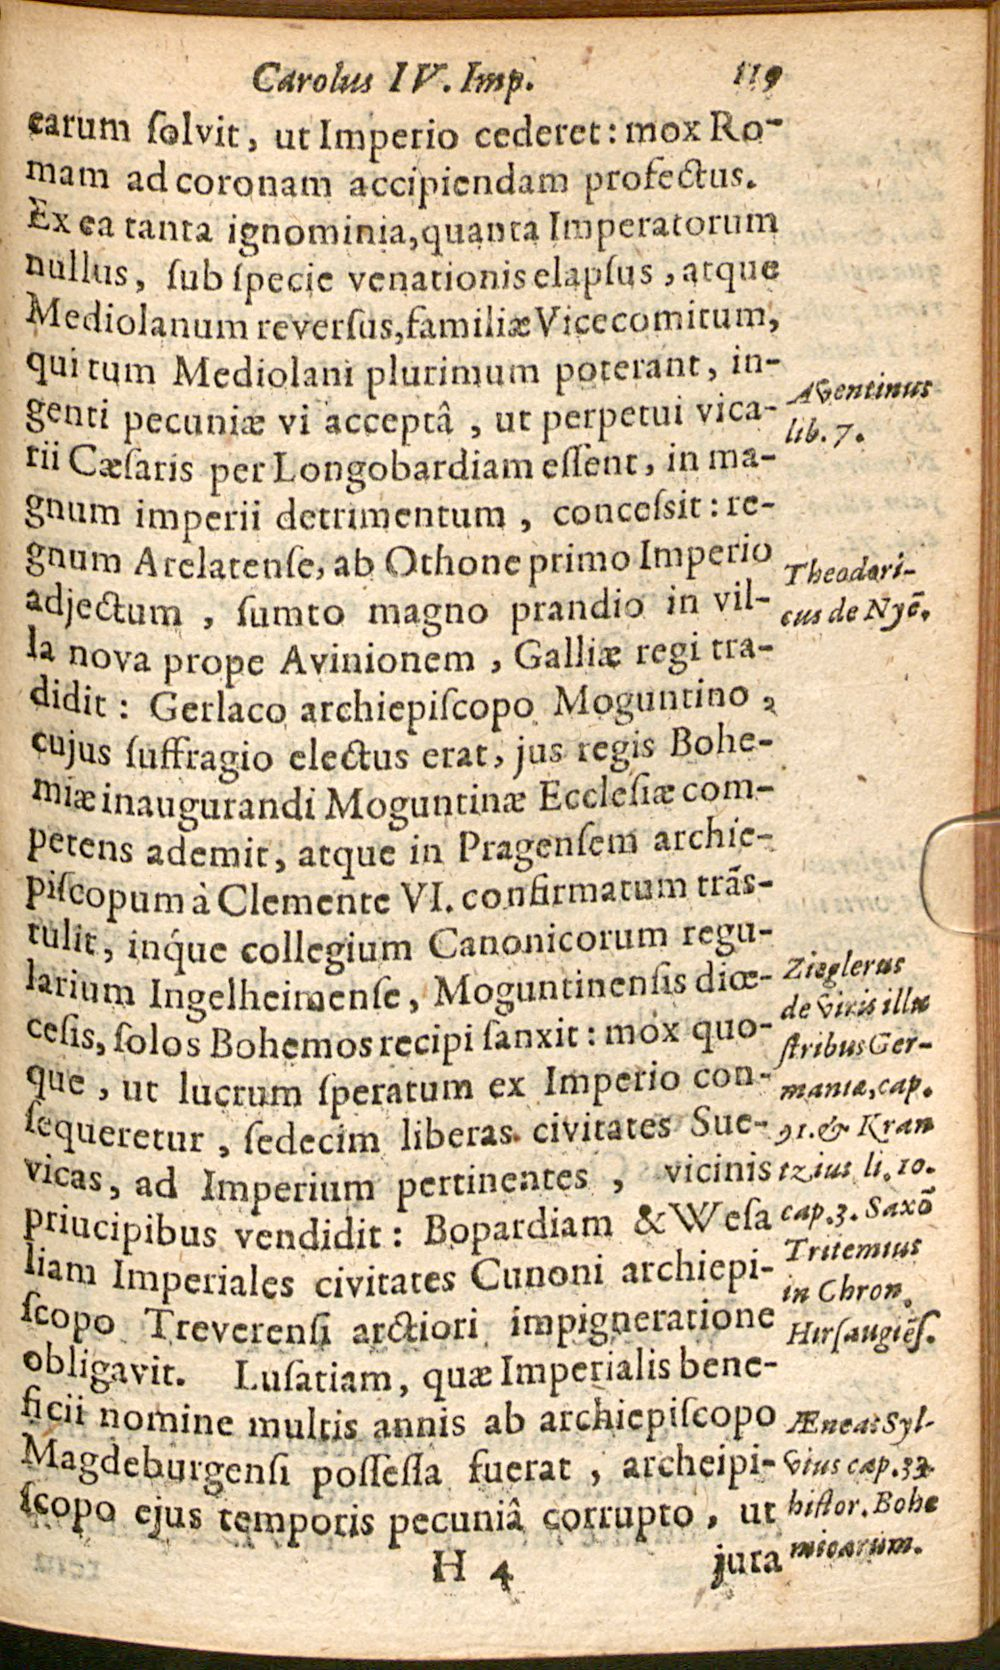 Carolus IV. Imp. 119
earum ſolvit, ut Imperio cederet: mox Ro-
mam ad coronam accipiendam profectus.
Ex ea tanta ignominia, quanta Imperatorum
nullus, ſub ſpecie venationis elapſus, atque
Mediolanum reverſus, familiæ Vicecomitum,
qui tum Mediolani plurimum poterant, in-
genti pecuniæ vi acceptâ, ut perpetui vica-
rii Cæſaris per Longobardiam eſſent, in ma-
gnum imperii detrimentum, conceſsit: re-
gnum Arelatenſe, ab Othone primo Imperio
adjectum, ſumto magno prandio in vil-
la nova prope Avinionem, Galliæ regi tra-
didit: Gerlaco archiepiſcopo Moguntino,
cujus ſuffragio electus erat, jus regis Bohe-
miæ inaugurandi Moguntinæ Eccleſiæ com-
petens ademit, atque in Pragenſem archie-
piſcopum à Clemente VI. confirmatum trãs-
tulit, inq́ue collegium Canonicorum regu-
larium Ingelheimenſe, Moguntinenſis diœ-
ceſis, ſolos Bohemos recipi ſanxit: mox quo-
que, ut lucrum ſperatum ex Imperio con-
ſequeretur, ſedecim liberas civitates Sue-
vicas, ad Imperium pertinentes, vicinis
priucipibus vendidit: Bopardiam & Weſa
liam Imperiales civitates Cunoni archiepi-
ſcopo Treverenſi arctiori impigneratione
obligavit. Luſatiam, quæ Imperialis bene-
ficii nomine multis annis ab archiepiſcopo
Magdeburgenſi poſſeſſa fuerat, archeipi-
ſcopo ejus temporis pecuniâ corrupto, ut
H 4 jura
Aventinus
lib. 7.
Theodori-
cus de Nyẽ.
Zieglerus
de viris illu
ſtribus Ger-
maniæ, cap.
91. & Kran
tzius li. 10.
cap. 3. Saxõ
Tritemius
in Chron.
Hirſaugiẽſ.
Æneas Syl-
vius cap. 33.
hiſtor. Bohe
micarum.